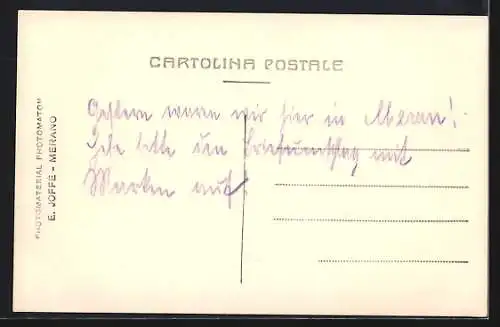 CARTOLINA POSTALE
Gestern waren wir hier in Meran!
Hebe bitte den Briefumschlag mit
Marken auf!
PHOTOMATERIAL PHOTOMATON
E. JOFFE - MERANO